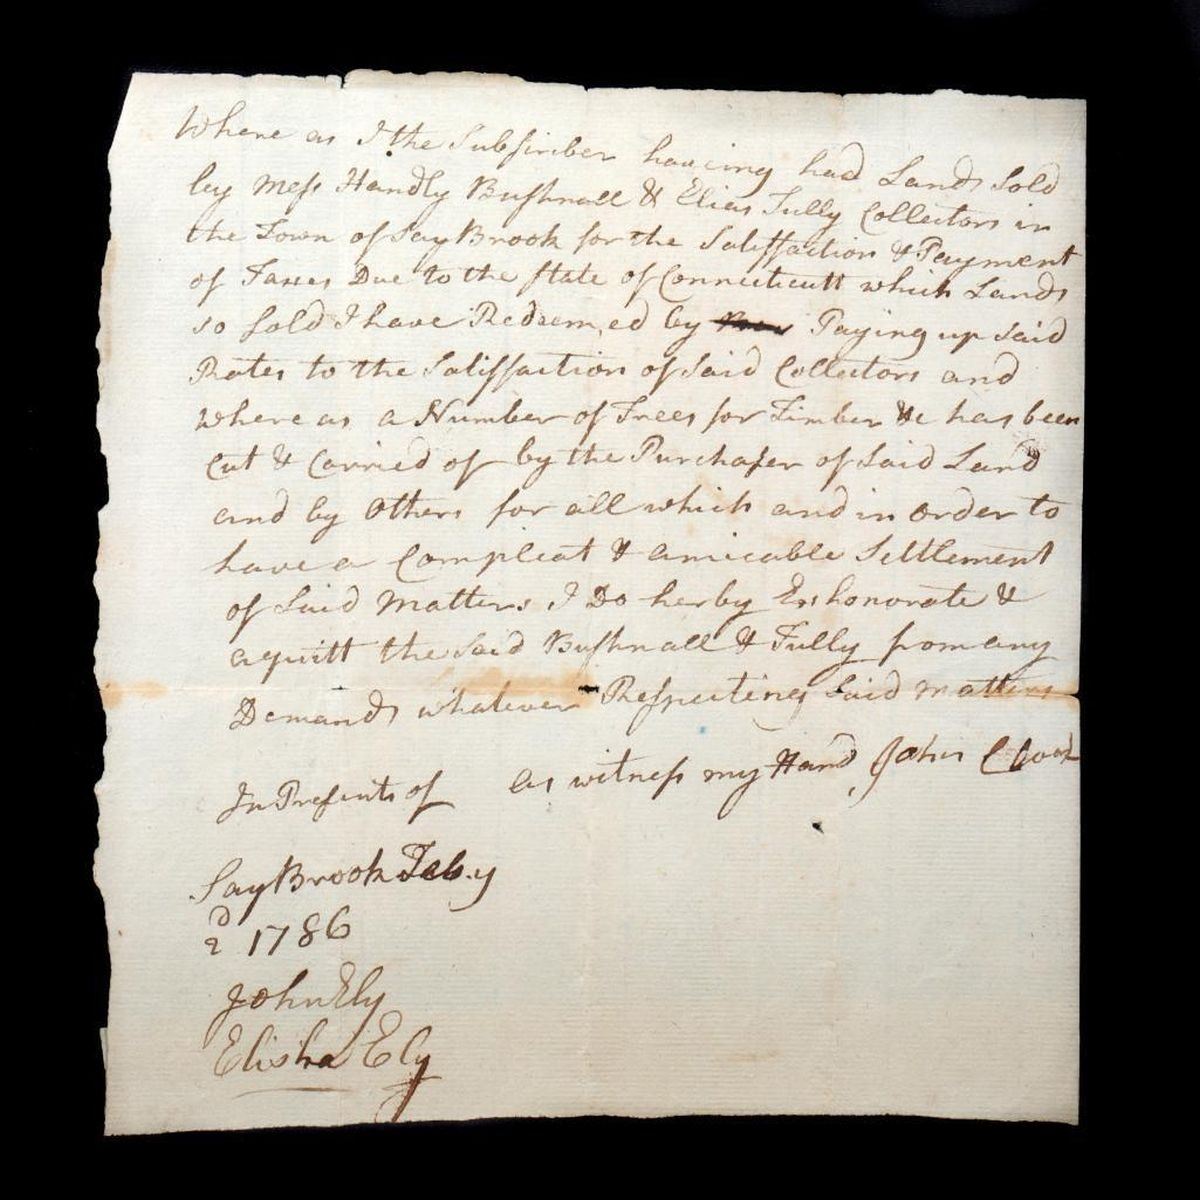 Where as I the Subsiriber haveing had Lands Sold
by Mess Handly Bushnall & Elias Tully Collectors in
the Town of SayBrook for the Satissfaction & Payment
of Taxes Due to the State of Connecticutt which Lands
so Sold I have Redeem,ed by Paying up Said
Rates to the Satissfaction of Said Collectors and
Where as a Number of Trees for Timber &c has been
Cut & Carried of by the Purchaser of Said Land
and by Others for all which and in order to
have a Compleat & amicable Settlement
of Said Matters I Do herby Exhonorate &
aquitt the Said Bushnall & Tully from any
Demands whatever Respecting Said Matters
as witness my Hand John
In Presents of
SayBrook Feb.y
2d 1786
John Ely
Elisha Ely